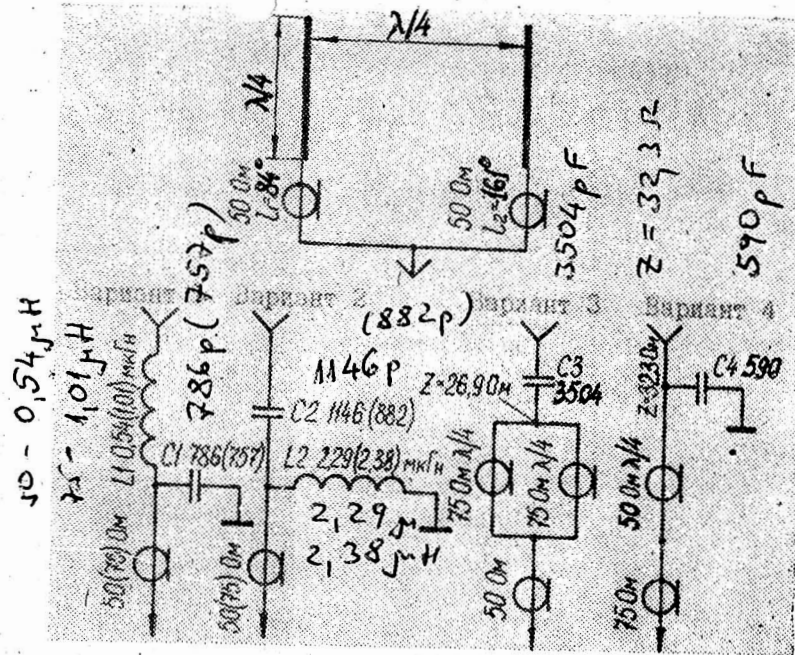 λ/4
λ/4
50 Ом
l₁=84°
50 Ом
l₂=161°
3504 pF
Z = 32,3 Ω
590 pF
50 - 0,54 μH
75 - 1,01 μH
786p (757p)
(882p)
1146p
Вариант
Вариант 2
Вариант 3
Вариант 4
L1 0,54(1,01) мкГн
C1 786(757)
50(75) Ом
C2 1146(882)
L2 2,29(2,38) мкГн
2,29 μ
2,38 μH
50(75) Ом
C3
3504
Z=26,9 Ом
75 Ом λ/4
75 Ом λ/4
50 Ом
C4 590
Z=32,3 Ом
50 Ом λ/4
75 Ом